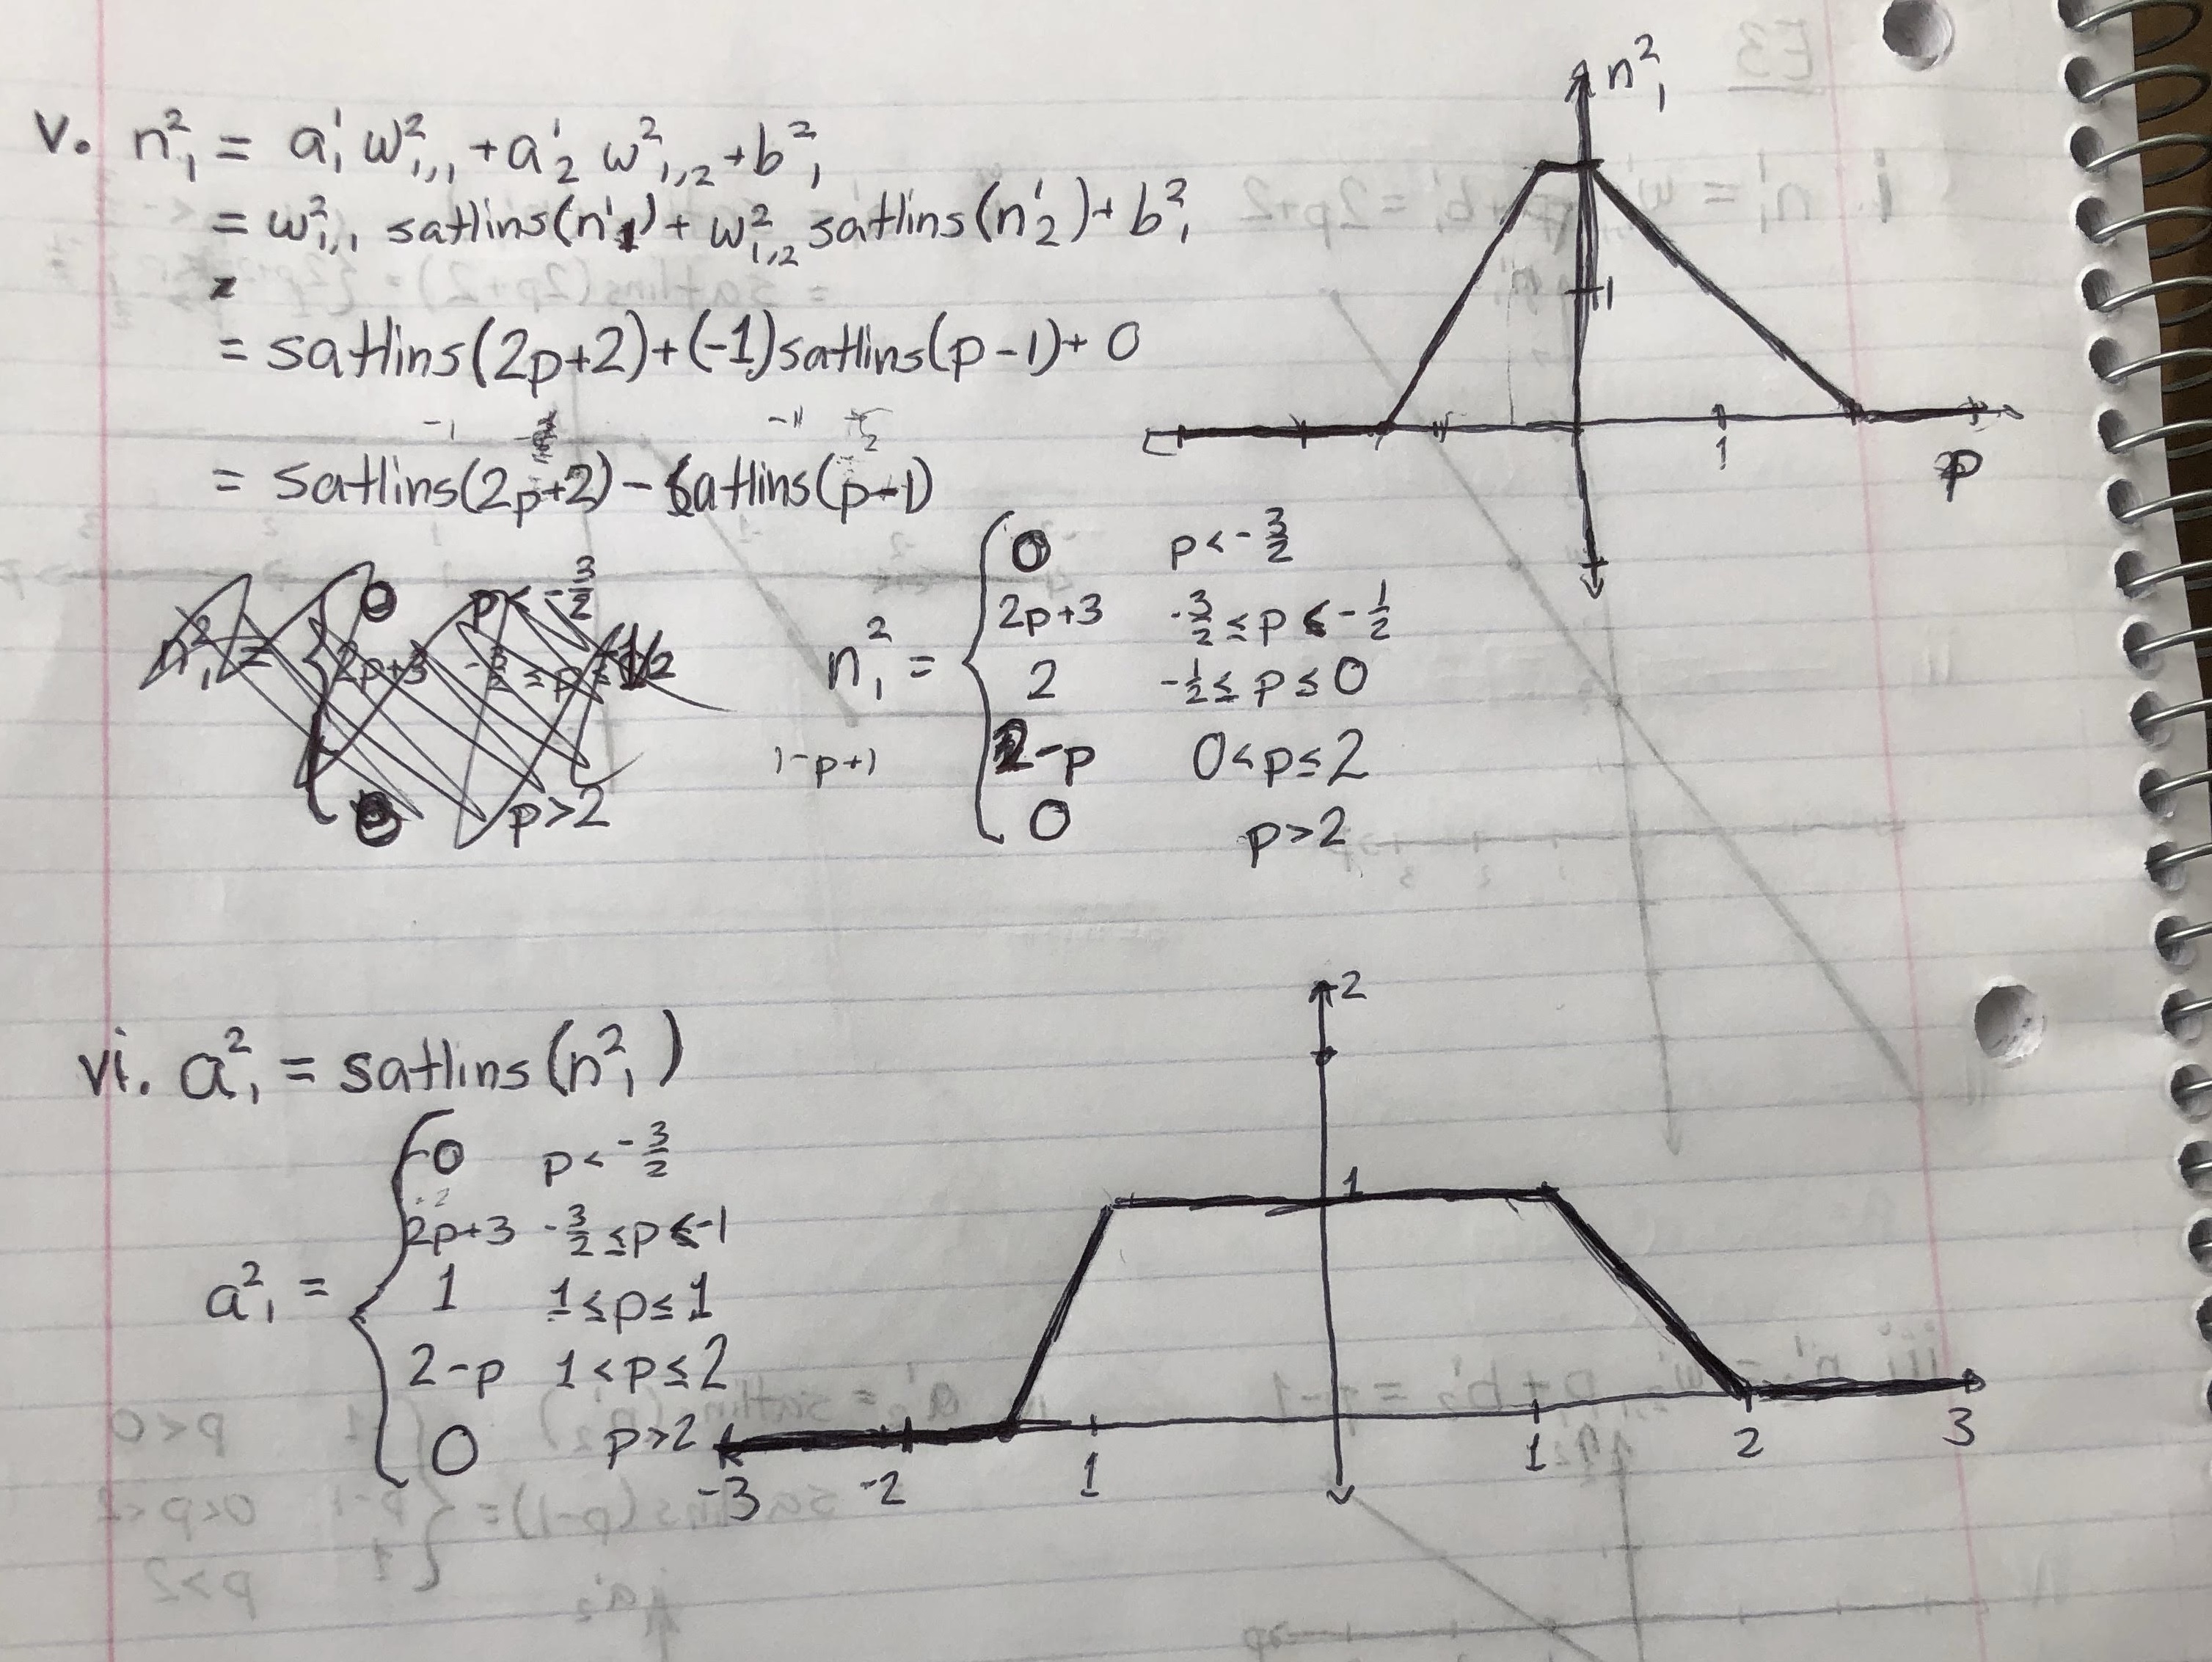 v. n²₁ = a¹₁ w²₁,₁ + a¹₂ w²₁,₂ + b²₁
= w²₁,₁ satlins(n¹₁) + w²₁,₂ satlins(n¹₂) + b²₁
=
= satlins(2p+2) + (-1)satlins(p-1) + 0
= satlins(2p+2) - satlins(p-1)
n²₁ = { 0 p < -3/2
2p+3
p>2
n²₁ = { 0 p < -3/2
2p+3 -3/2 ≤ p < -1/2
2 -1/2 ≤ p ≤ 0
1-p+1
2-p 0 < p ≤ 2
0 p > 2
n²₁
1
1
p
vi. a²₁ = satlins(n²₁)
a²₁ = { 0 p < -3/2
2p+3 -3/2 ≤ p < -1
1 1 ≤ p ≤ 1
2-p 1 < p ≤ 2
0 p > 2
2
1
-3 -2 1 1 2 3